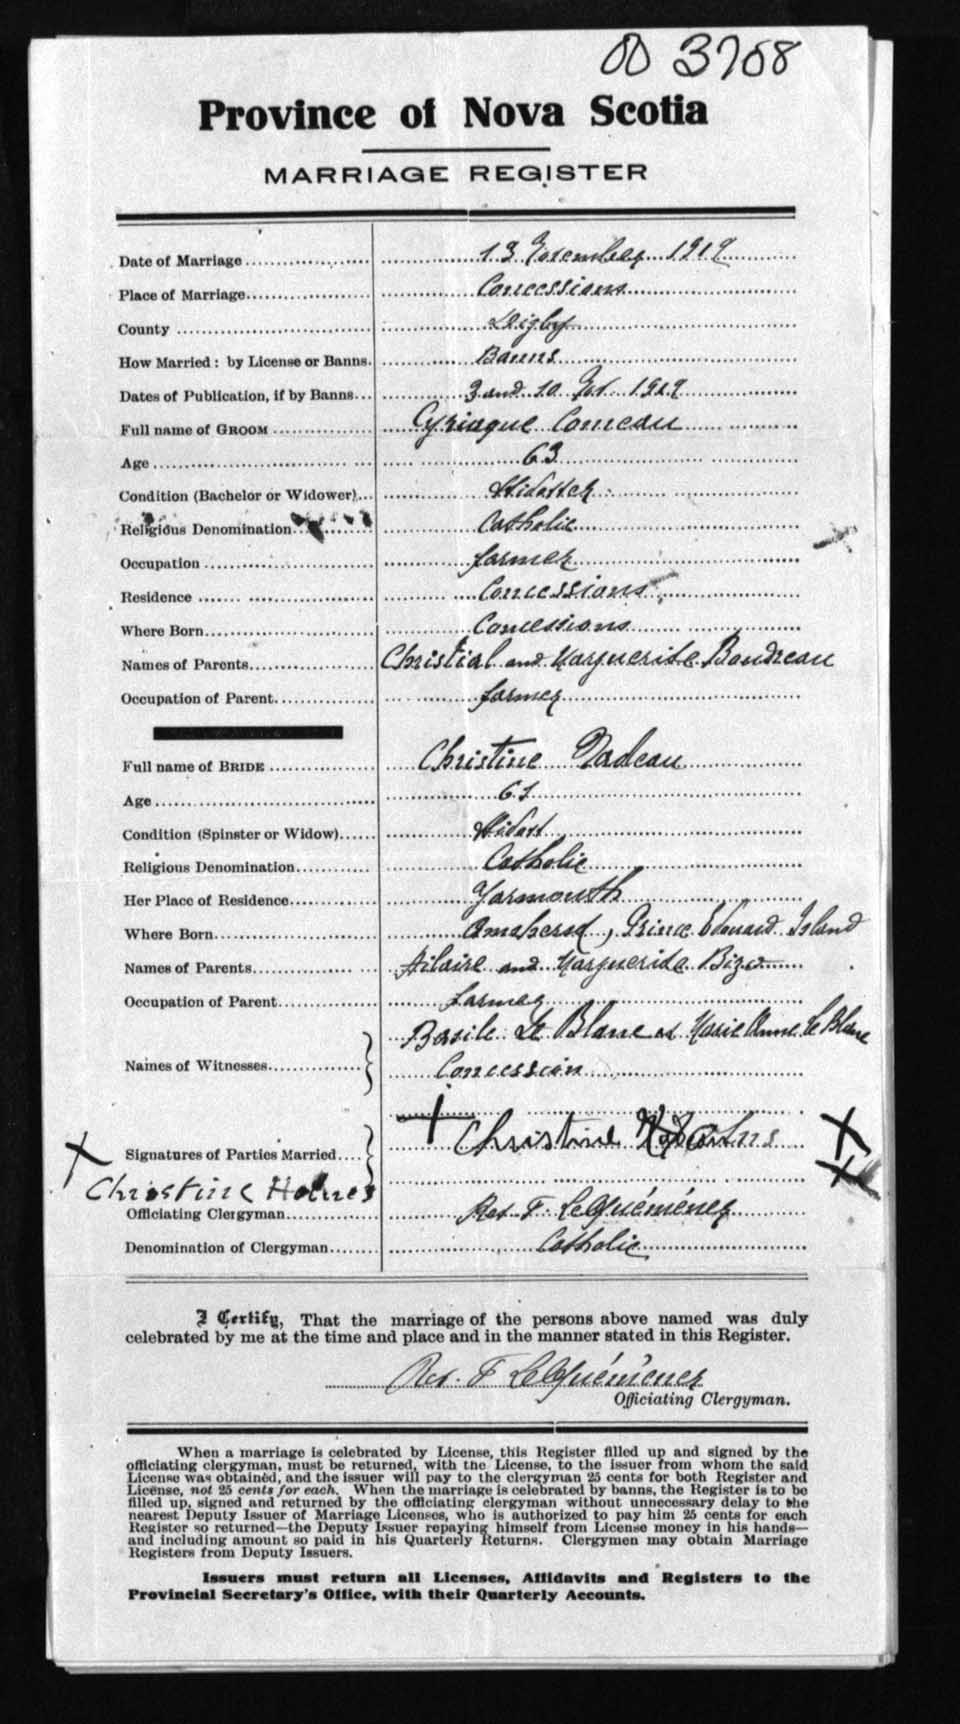 00 3708
Province of Nova Scotia
MARRIAGE REGISTER
Date of Marriage 13 November 1919
Place of Marriage Concessions
County Digby
How Married: by License or Banns. Banns
Dates of Publication, if by Banns 3 and 10 Nov. 1919
Full name of GROOM Cyriaque Comeau
Age 63
Condition (Bachelor or Widower) Widower
Religious Denomination Catholic
Occupation farmer
Residence Concessions
Where Born Concessions
Names of Parents Christial and Marguerite Boudreau
Occupation of Parent farmer
Full name of BRIDE Christine Nadeau
Age 61
Condition (Spinster or Widow) Widow
Religious Denomination Catholic
Her Place of Residence Yarmouth
Where Born Prince Edouard Island
Names of Parents Hilaire and Marguerite
Occupation of Parent farmer
Basile Le Blanc et Marie Anne Le Blanc
Names of Witnesses Concession
Signatures of Parties Married Christine
Christine Holmes
Officiating Clergyman Rev. F. LeQuéménér
Denomination of Clergyman Catholic
I Certify, That the marriage of the persons above named was duly
celebrated by me at the time and place and in the manner stated in this Register.
Rev. F LeQuéménér
Officiating Clergyman.
When a marriage is celebrated by License, this Register filled up and signed by the
officiating clergyman, must be returned, with the License, to the issuer from whom the said
License was obtained, and the issuer will pay to the clergyman 25 cents for both Register and
License, not 25 cents for each. When the marriage is celebrated by banns, the Register is to be
filled up, signed and returned by the officiating clergyman without unnecessary delay to the
nearest Deputy Issuer of Marriage Licenses, who is authorized to pay him 25 cents for each
Register so returned—the Deputy Issuer repaying himself from License money in his hands—
and including amount so paid in his Quarterly Returns. Clergymen may obtain Marriage
Registers from Deputy Issuers.
Issuers must return all Licenses, Affidavits and Registers to the
Provincial Secretary's Office, with their Quarterly Accounts.